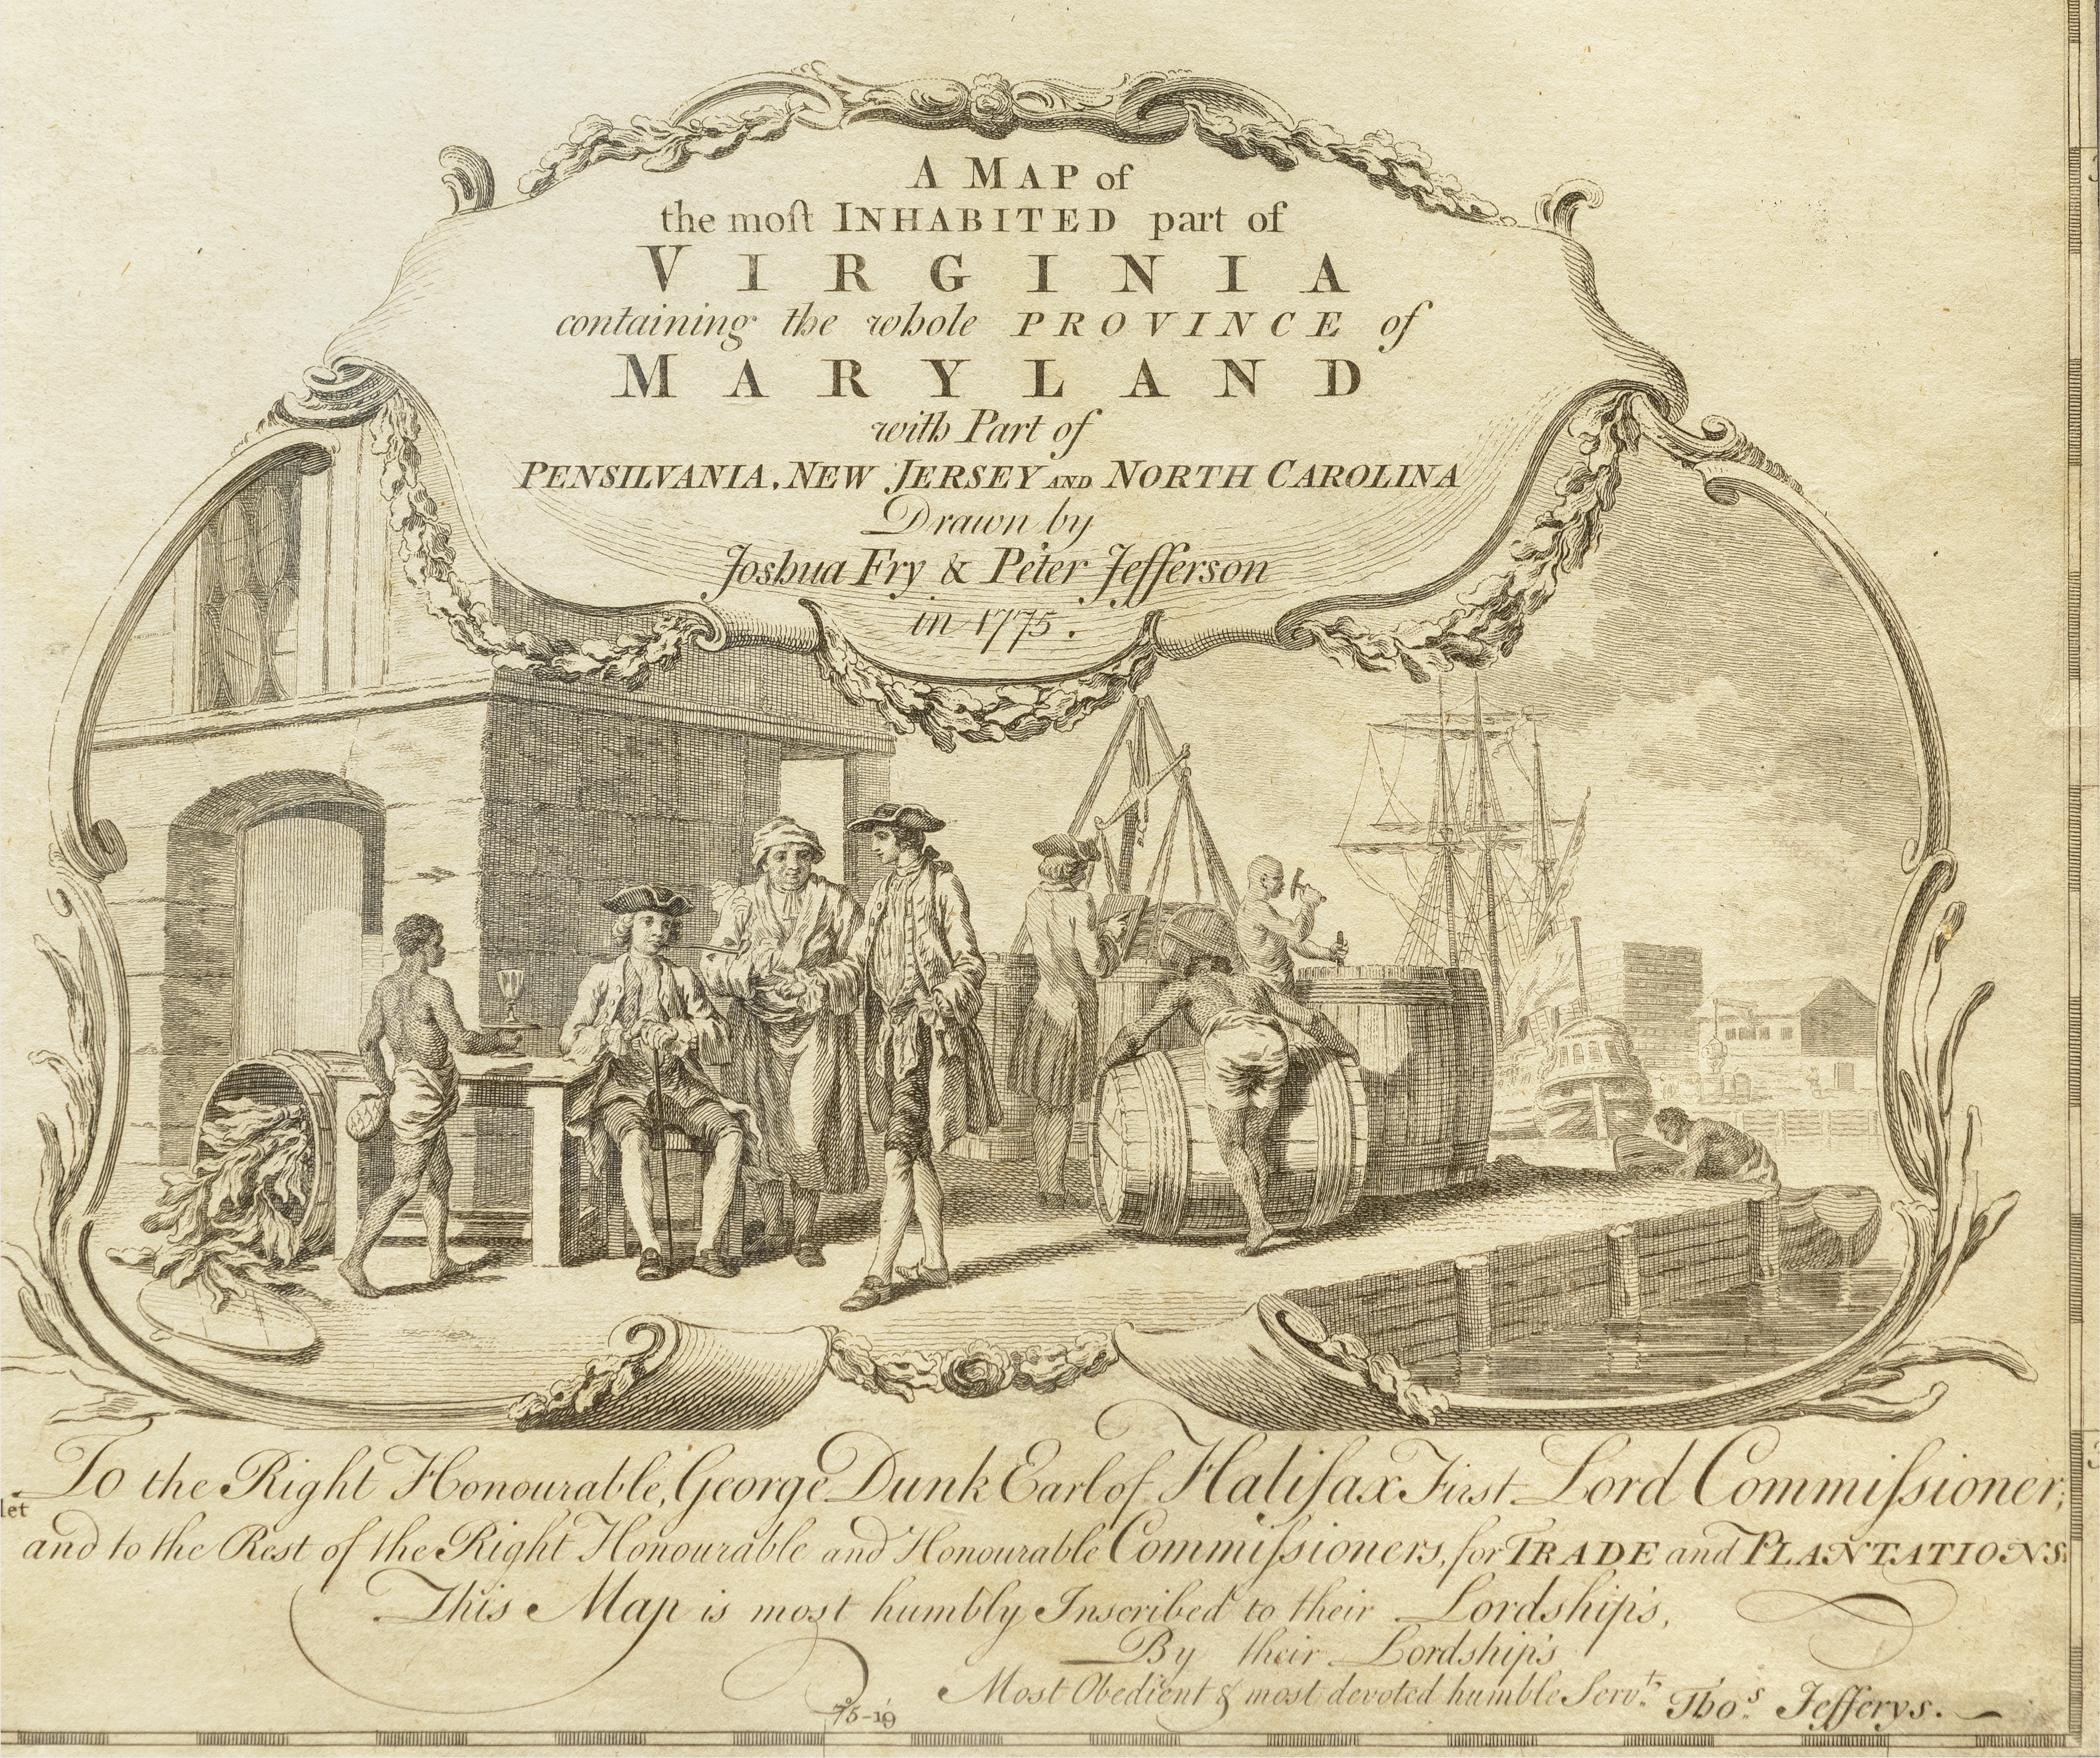 A MAP of
the moſt INHABITED part of
VIRGINIA
containing the whole PROVINCE of
MARYLAND
with Part of
PENSILVANIA, NEW JERSEY AND NORTH CAROLINA
Drawn by
Joshua Fry & Peter Jefferson
in 1775.
To the Right Honourable, George Dunk Earl of Halifax First Lord Commiſsioner;
let
and to the Rest of the Right Honourable and Honourable Commiſsioners, for TRADE and PLANTATIONS.
This Map is most humbly Inscribed to their Lordship's,
By their Lordship's
Most Obedient & most devoted humble Servts. Thos. Jefferys.